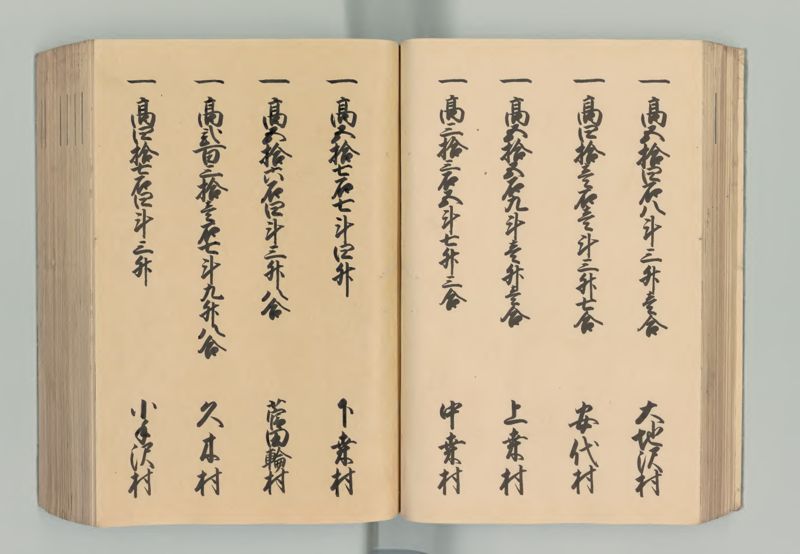 一 高五拾四石八斗三升壱合 大地沢村
一 高四拾壱石壱斗三升七合 安代村
一 高五拾五石九斗壱升壱合 上村
一 高三拾三石五斗七升三合 中村
一 高五拾七石七斗四升 下村
一 高五拾六石四斗三升八合 田輪村
一 高弐百三拾壱石七斗九升八合 久木村
一 高四拾七石四斗三升 小手沢村